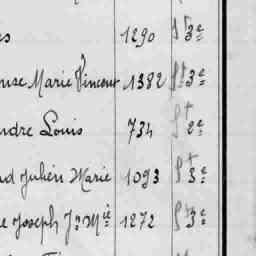 es 1290 St 3e
ouse Marie Vincent 1382 St 3e
ndre Louis 734 St 2e
nd Julien Marie 1093 St 3e
e Joseph Jn Mie 1272 St 3e